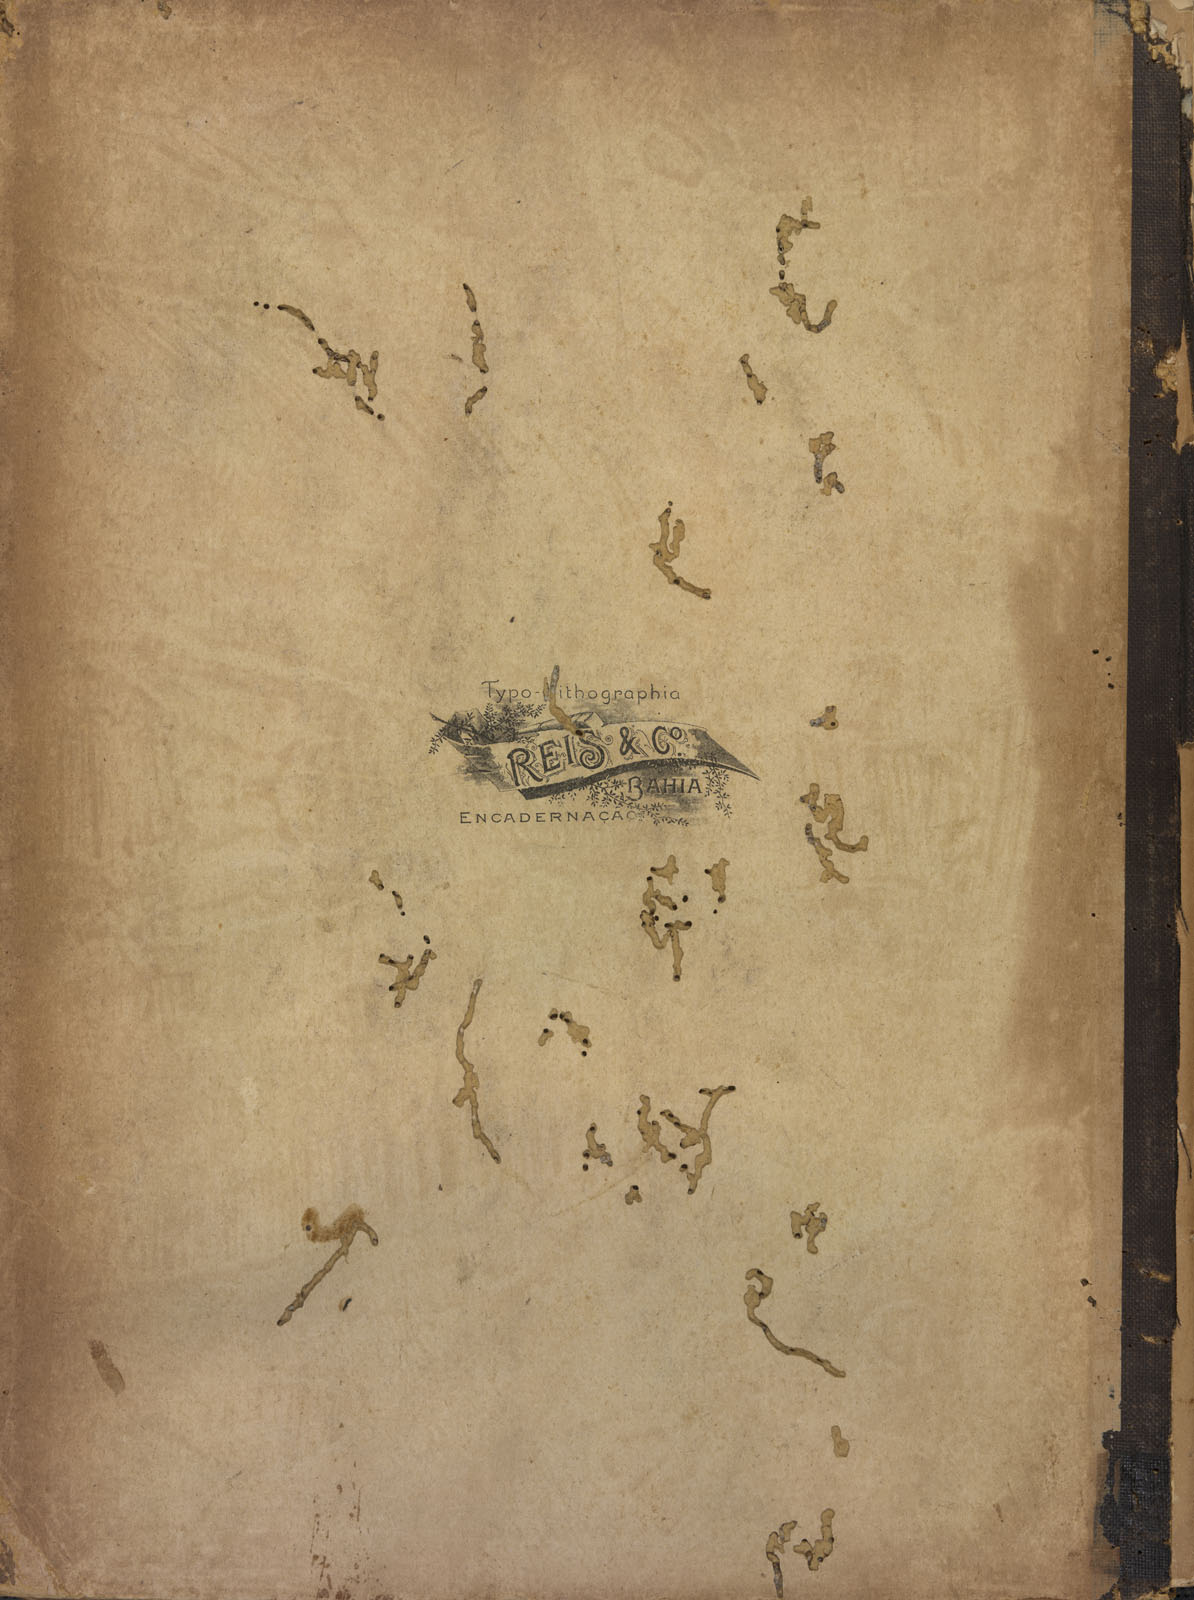 Typo-Lithographia
REIS & Cº
BAHIA
ENCADERNAÇAO